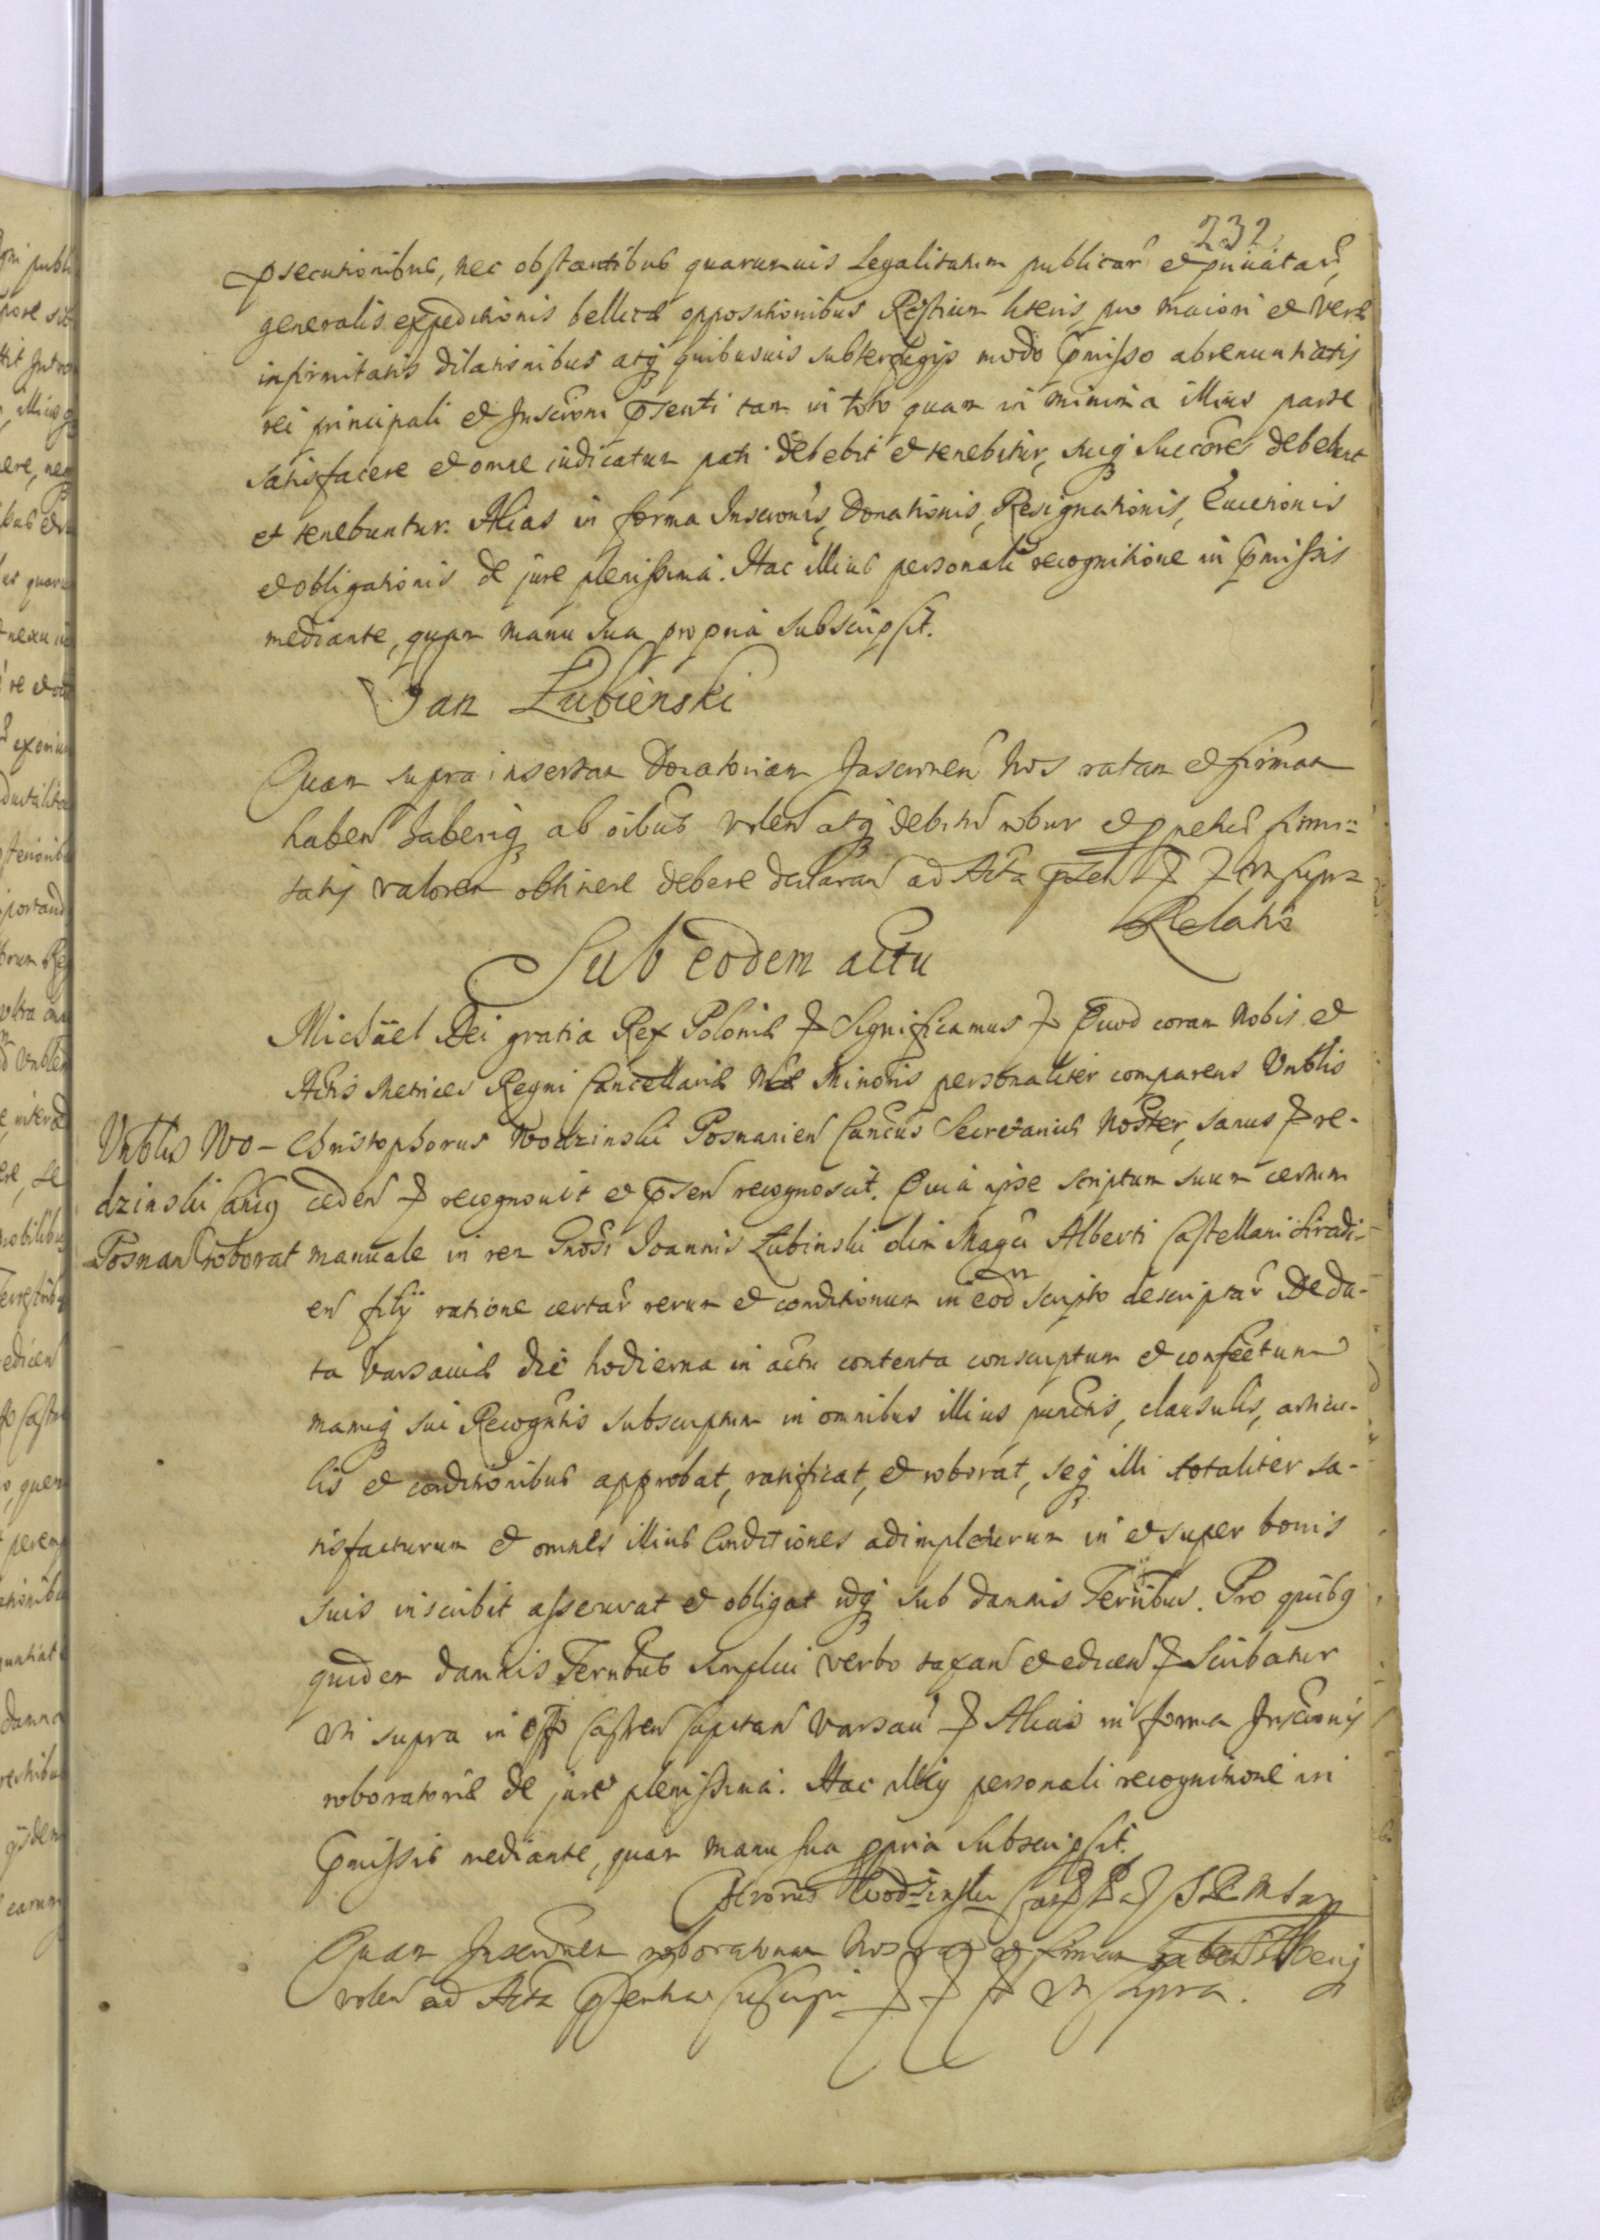 232
psecutionibus, nec obstantibus quarumuis Legalitatum publicar et priuatar,
generalis expeditionis bellicæ oppositionibus Rescrium literis, pro maiori et veræ
infirmitatis dilationibus atq quibusuis subterfugijs modo pmisso abrenuntiatis
rei principali et Inscrioni psenti tam in toto quam in minima illius parte
satisfacere et omne iudicatum pati debebit et tenebitur, suiq Succores debebunt
et tenebuntur. Alias in forma Inscronis, Donationis, Resignationis, Euictionis
et obligationis de jure plenissima. Hac illius personali recognitione in pmissis
mediante, quam manu sua propria subscripsit.
Jan Łubieński
Quam supra insertam Donatoriam Inscrionem Nos ratam et firmam
haben haberiq ab oibus volen atq debitu robur et firmi=
tatis valorem obtinere debere declaran ad Acta psen
Relatio
Sub eodem actu
Michäel Dei gratia Rex Poloniæ Significamus Quod coram Nobis et
Actis Metrices Regni Cancellariæ Minoris personaliter comparens Vrblis
Vrblis Wo-
dzinski Canq
Posnan roborat
Christophorus Wodzinski Posnanien Cancus Secretarius Noster, sanus re-
ceden recognouit et psen recognoscit. Quia ipse scriptum suum certum
manuale in rem Gnosi Joannis Łubinski olim Magci Alberti Castellani Siradi-
en filij ratione certar rerum et conditionum in eod scripto descriptar De da-
ta Varsauiæ die hodierna in actu contenta conscriptum et confectum
manuq sui Recogntis subscriptum in omnibus illius punctis, clausulis, articu-
lis et conditionibus approbat, ratificat, et roborat, seq illi totaliter sa-
tisfacturum et omnes illius Conditiones adimpleturum in et super bonis
suis inscribit asseruat et obligat idq sub damnis Ternibus. Pro quibq
quidem damnis Ternbus simplici verbo taxan et edicen Scribatur
vti supra in offo Castren Capitan Varsau Alias in forma Inscrionis
roboratoriæ de jure plenissima. Hac illiq personali recognitione in
pmissis mediante, quam manu sua ppria subscripsit.
Wodzinski
Quam Inscrionem roboratoriam Nos ratam et firmam
volen ad Acta psentia vti supra.